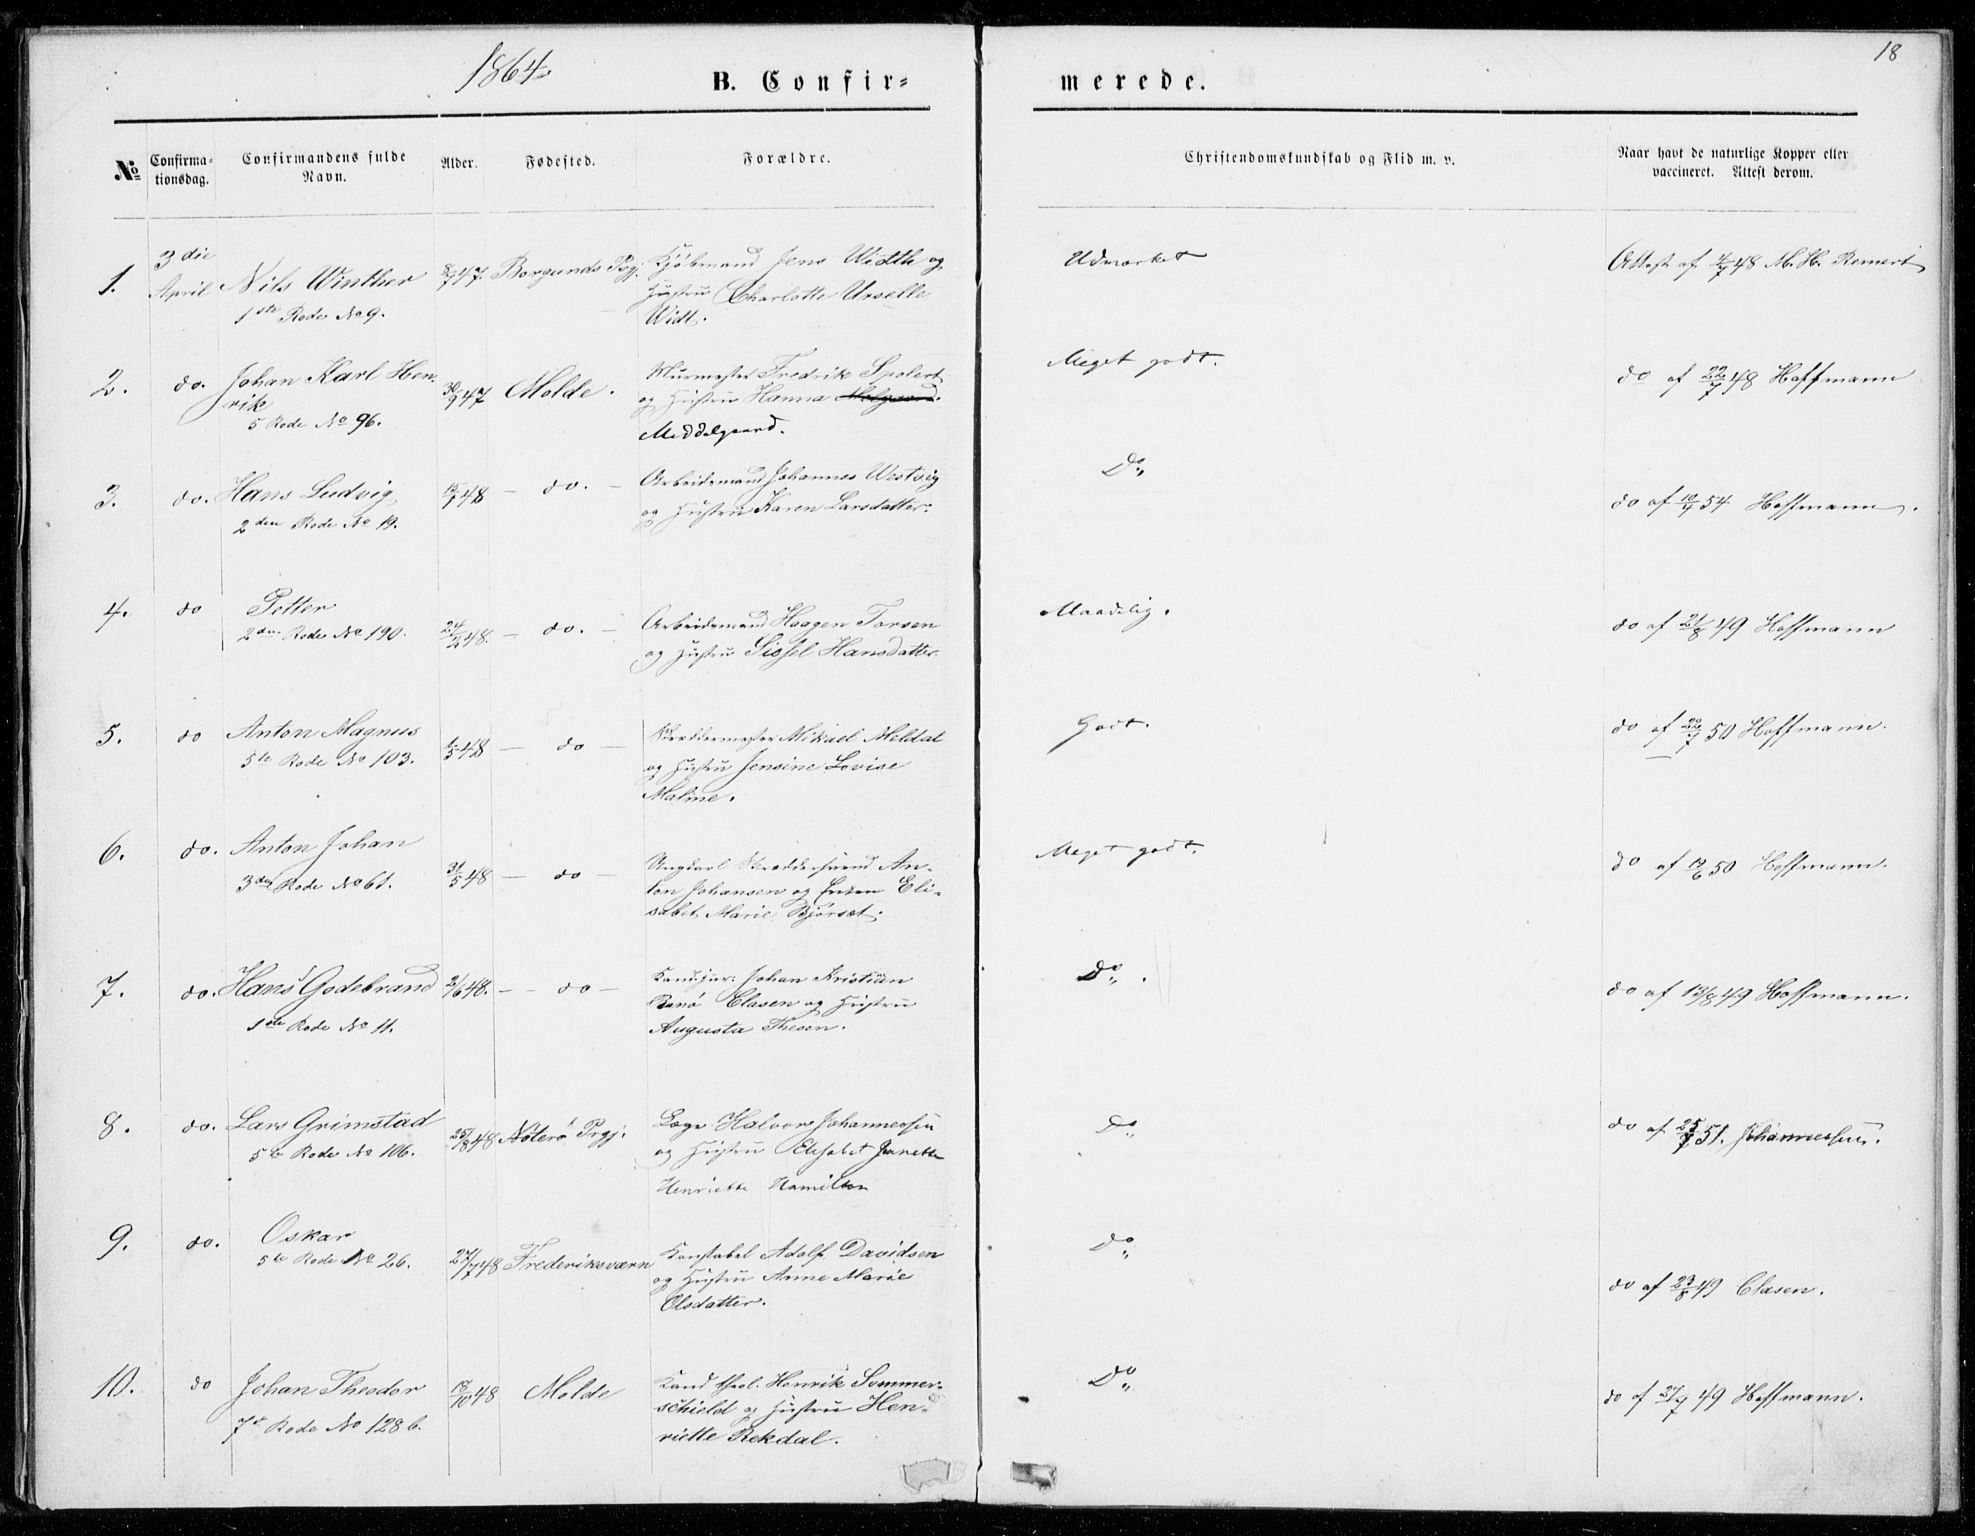 1864
18
B. Confir=
merede.
№
Confirma-
tionsdag.
Confirmandens fulde
Navn.
Alder.
Fødested.
Forældre.
Christendomskundskab og Flid m. v.
Naar havt de naturlige Kopper eller
vaccineret. Attest derom.
1.
3die
April
Nils Winther
1ste Rode No 9.
47.
Borgunds Prgj.
Kjøbmand Jens Width og
Hustru Charlotte Urselle
Widt.
Udmærket
Attest af 48
2.
do.
Johan Karl Hen-
rik
5 Rode No 96.
30/9 47
Molde.
Murmester Fredrik Spolert
og Hustru Hanna
Meddelgaard.
Meget godt.
do af 22/7 48 Hoffmann
3.
do.
Hans Ludvig
2den Rode No 19.
48
— do. —
Arbeidsmand Johannes Westvig
og Hustru Karen Larsdatter.
Do
do af 54 Hoffmann.
4.
do
Petter
2den Rode No 190.
24/2 48.
— do. —
Arbeidsmand Haagen Torsen
og Hustru Sissel Hansdatter.
Maadelig.
do af 21/8 49 Hoffmann
5.
do
Anton Magnus
5te Rode No 103.
48
— do —
Skræddermester Mikael Meldal
og Hustru Jensine Lovise
Maline.
Godt.
do af 22/7 50 Hoffmann.
6.
do.
Anton Johan
3die Rode No 61.
31/5 48
— do —
Ungkarl Skræddersvend An-
ton Johansen og Enken Eli-
sabet Marie Bjørset.
Meget godt.
do af 50 Hoffmann.
7.
do.
Hans Godebrand
1ste Rode No 11.
48.
— do —
Kand. jur. Johan Kristian
Clasen og Hustru
Augusta Thesen.
Do.
do af 13/8 49 Hoffmann.
8.
do.
Lars Grimstad
5te Rode No 106.
25/8 48
Nøterø Prgj.
Læge Halvor Johannessen
og Hustru Elisabet Janette
Henriette Hamilton
Do
do af 25/7 51. Johannessen.
9.
do.
Oskar
5te Rode No 26.
27/7 48
Frederiksværn
Konstabel Adolf Davidsen
og Hustru Anne Marie
Olsdatter.
Do
do af 23/8 49 Clasen.
10.
do
Johan Theodor
7de Rode No 128 b.
48
Molde
Kand theol. Henrik Sommer-
schield og Hustru Hen-
riette Rekdal.
Do
do af 27/7 49 Hoffmann.